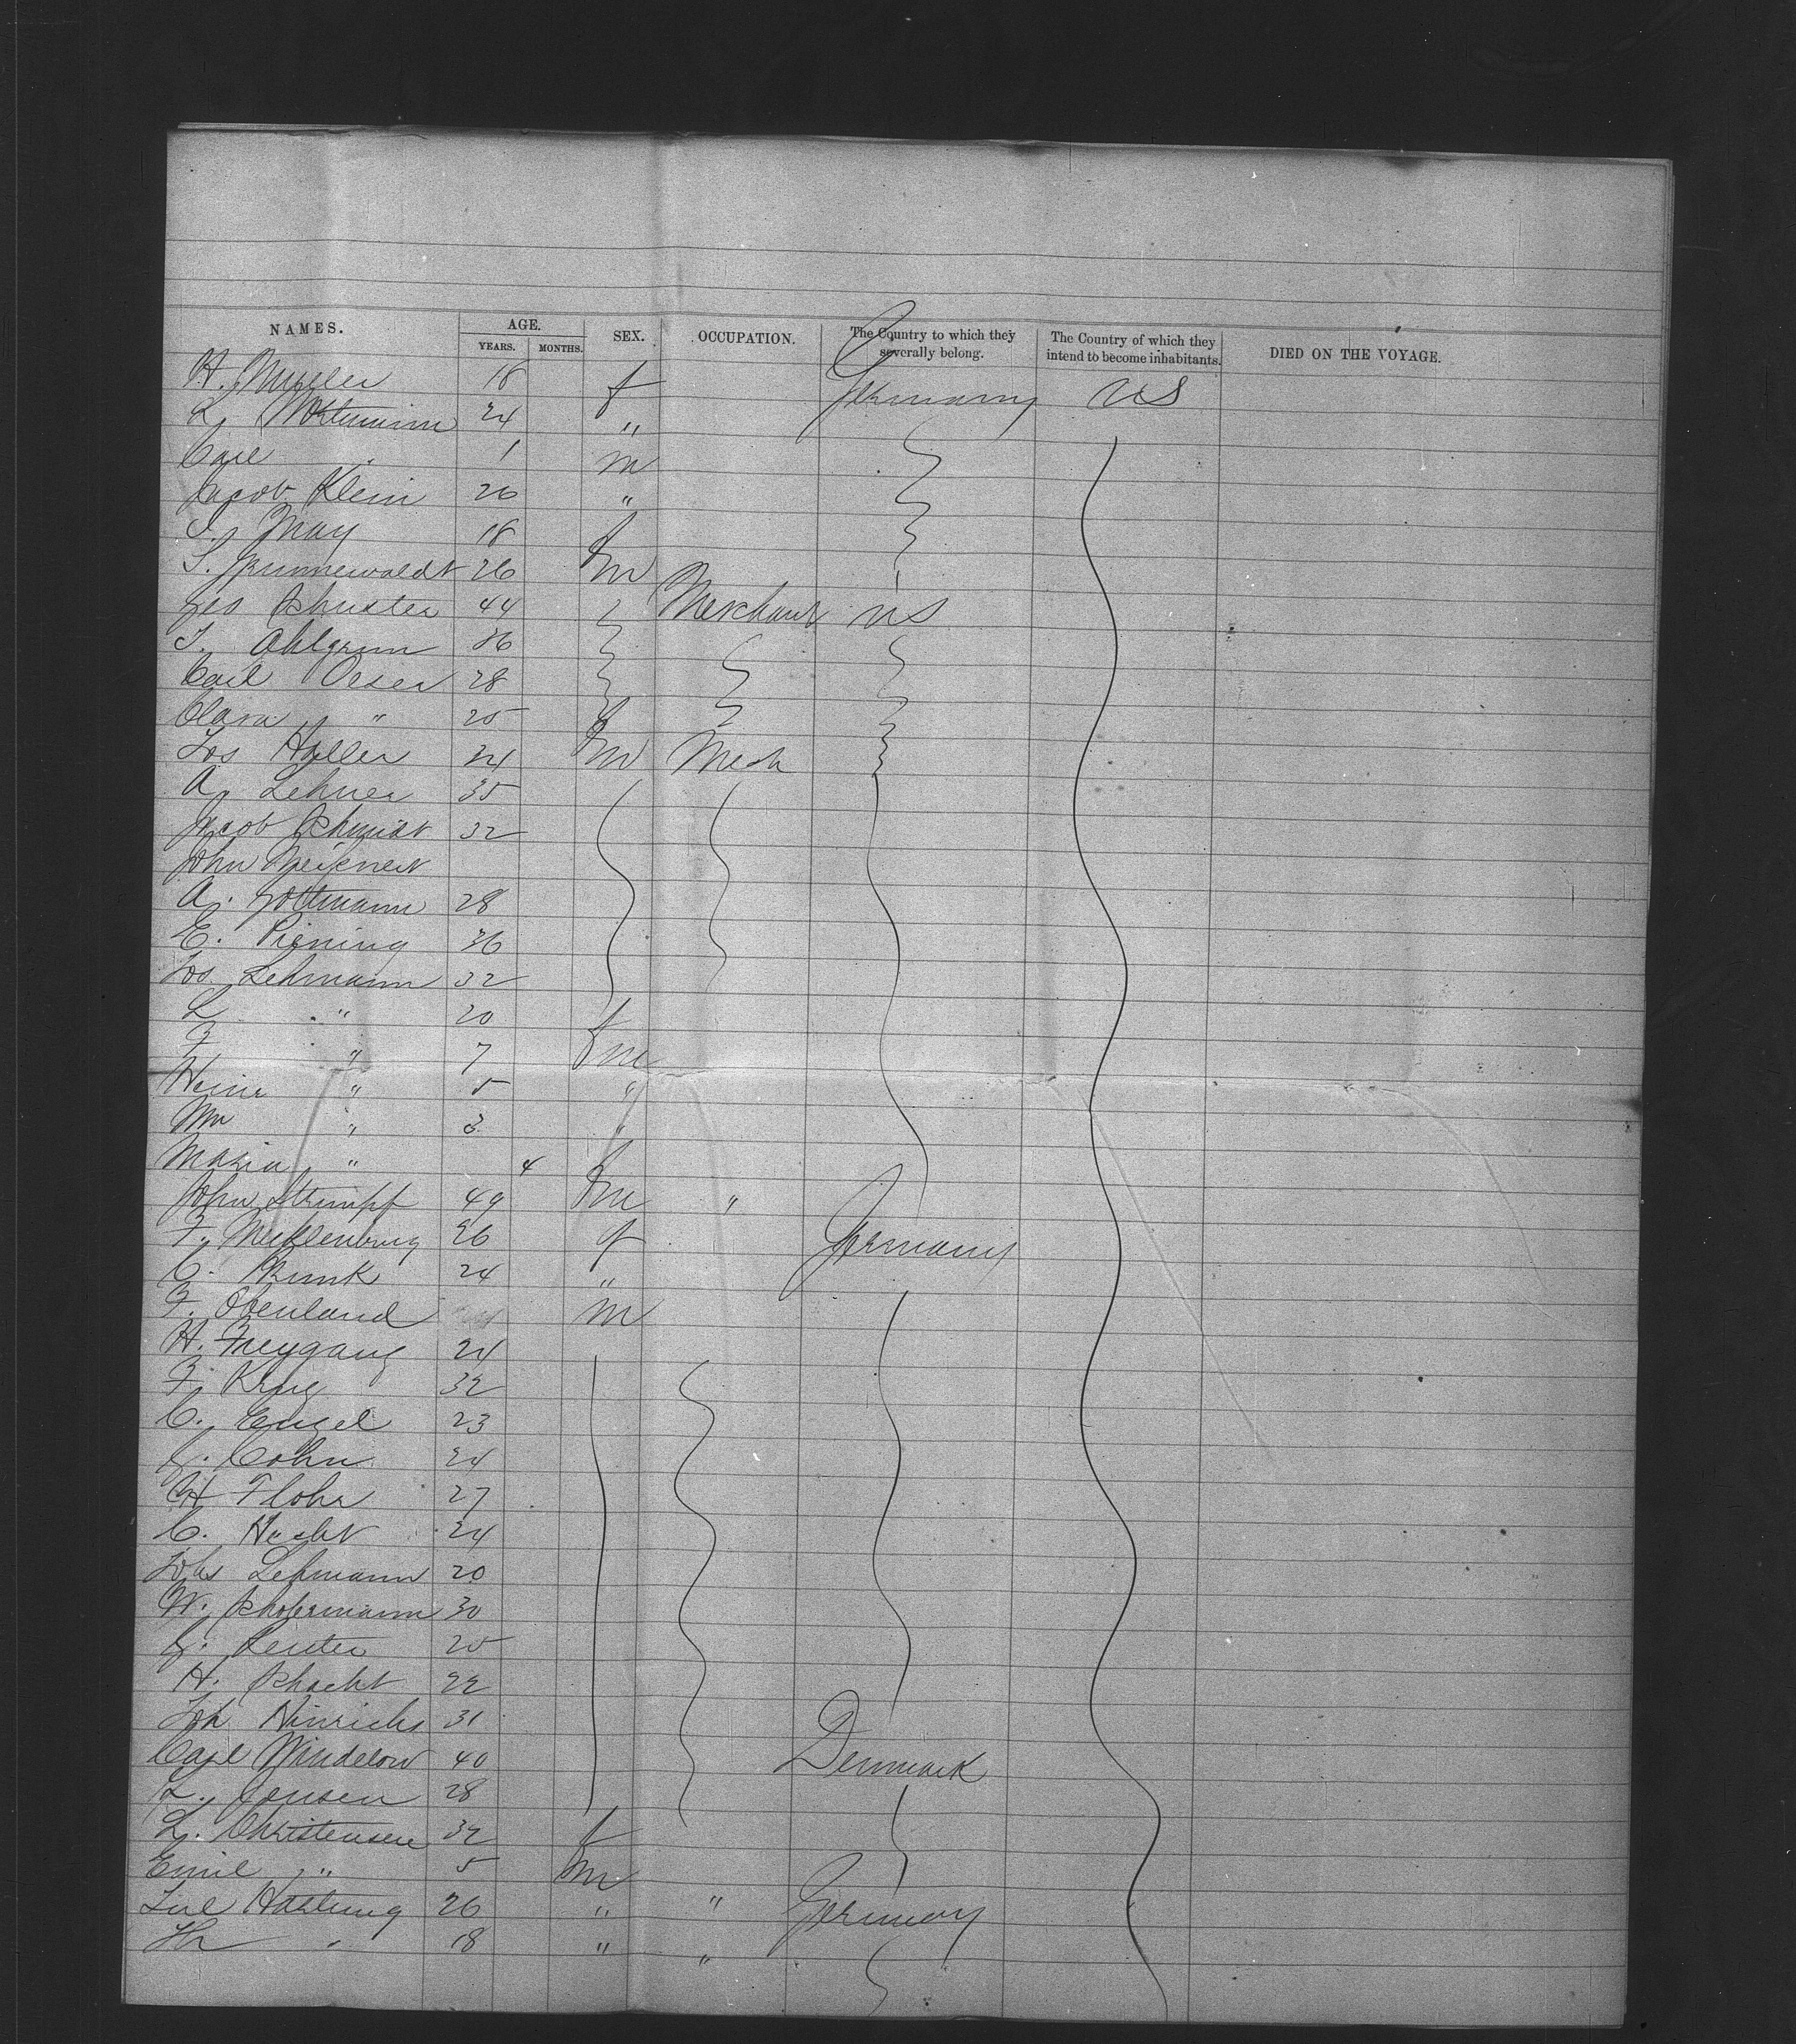 NAMES. AGE. SEX. OCCUPATION. The Country to which they severally belong. The Country of which they intend to become inhabitants. DIED ON THE VOYAGE.
YEARS. MONTHS.
H. Müller 18 f Germany US
L. 24 "
Carl 1 m
Jacob Klein 26 "
S. May 18 f
S. Grunnewaldt 26 m
Geo Schuster 44 Merchant US
T. Ahlgrim 36
Carl Oeser 28
Clara " 25 f
Jos Haller 24 m Mech
A. Lehner 35
Jacob Schmidt 32
John
A. Goltmann 28
E. Piening 36
Jos Lehmann 32
L " 20 f
F " 7 m
Heinr " 5 "
Wm " 3 "
Maria " 4 f
John Strumpf 49 m "
F. Mecklenburg 26 f Germany
C. 24 "
F. Obenland m
H. Freygang 24
F. Krug 32
C. Engel 23
Cohn 24
H Flohr 27
C. Hecht 24
Johs Lehmann 20
W. Schofermann 30
25
H. Schacht 22
Joh Hinrichs 31
Carl Windelow 40 Denmark
L. Jensen 28
L. Christensen 32 f
Emil " 5 m
Jul Hartung 26 " " Germany
Th " 18 " "